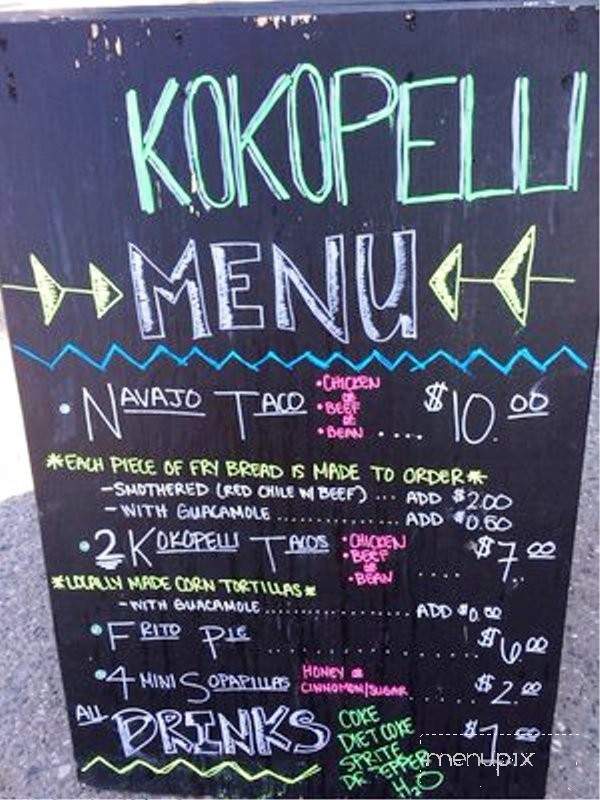 KOKOPELLI
MENU
• NAVAJO TACO • CHICKEN OR • BEEF OR • BEAN .... $10.00
*EACH PIECE OF FRY BREAD IS MADE TO ORDER*
- SMOTHERED (RED CHILE W/ BEEF) ... ADD $2.00
- WITH GUACAMOLE .............. ADD $0.50
• 2 KOKOPELLI TACOS • CHICKEN • BEEF OR • BEAN .... $7.00
*LOCALLY MADE CORN TORTILLAS*
- WITH GUACAMOLE .................. ADD $0.50
• FRITO PIE .................. $6.00
• 4 MINI SOPAPILLAS HONEY OR CINNOMON/SUGAR ...... $2.00
ALL DRINKS $1.00
COKE
DIET COKE
SPRITE
DR. PEPPER
H2O
menupix